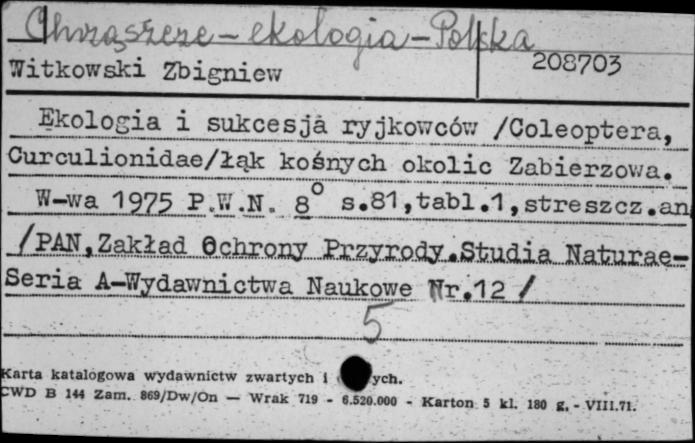 Chrząszcze - ekologia - Polska
Witkowski Zbigniew 208703
Ekologia i sukcesja ryjkowców /Coleoptera,
Curculionidae/łąk kośnych okolic Zabierzowa.
W-wa 1975 P.W.N. 8° s.81,tabl.1,streszcz.an
/PAN,Zakład Ochrony Przyrody.Studia Naturae-
Seria A-Wydawnictwa Naukowe Nr.12 /
5
Karta katalogowa wydawnictw zwartych i ych.
CWD B 144 Zam. 869/Dw/On — Wrak 719 - 6.520.000 - Karton 5 kl. 180 g. - VIII.71.